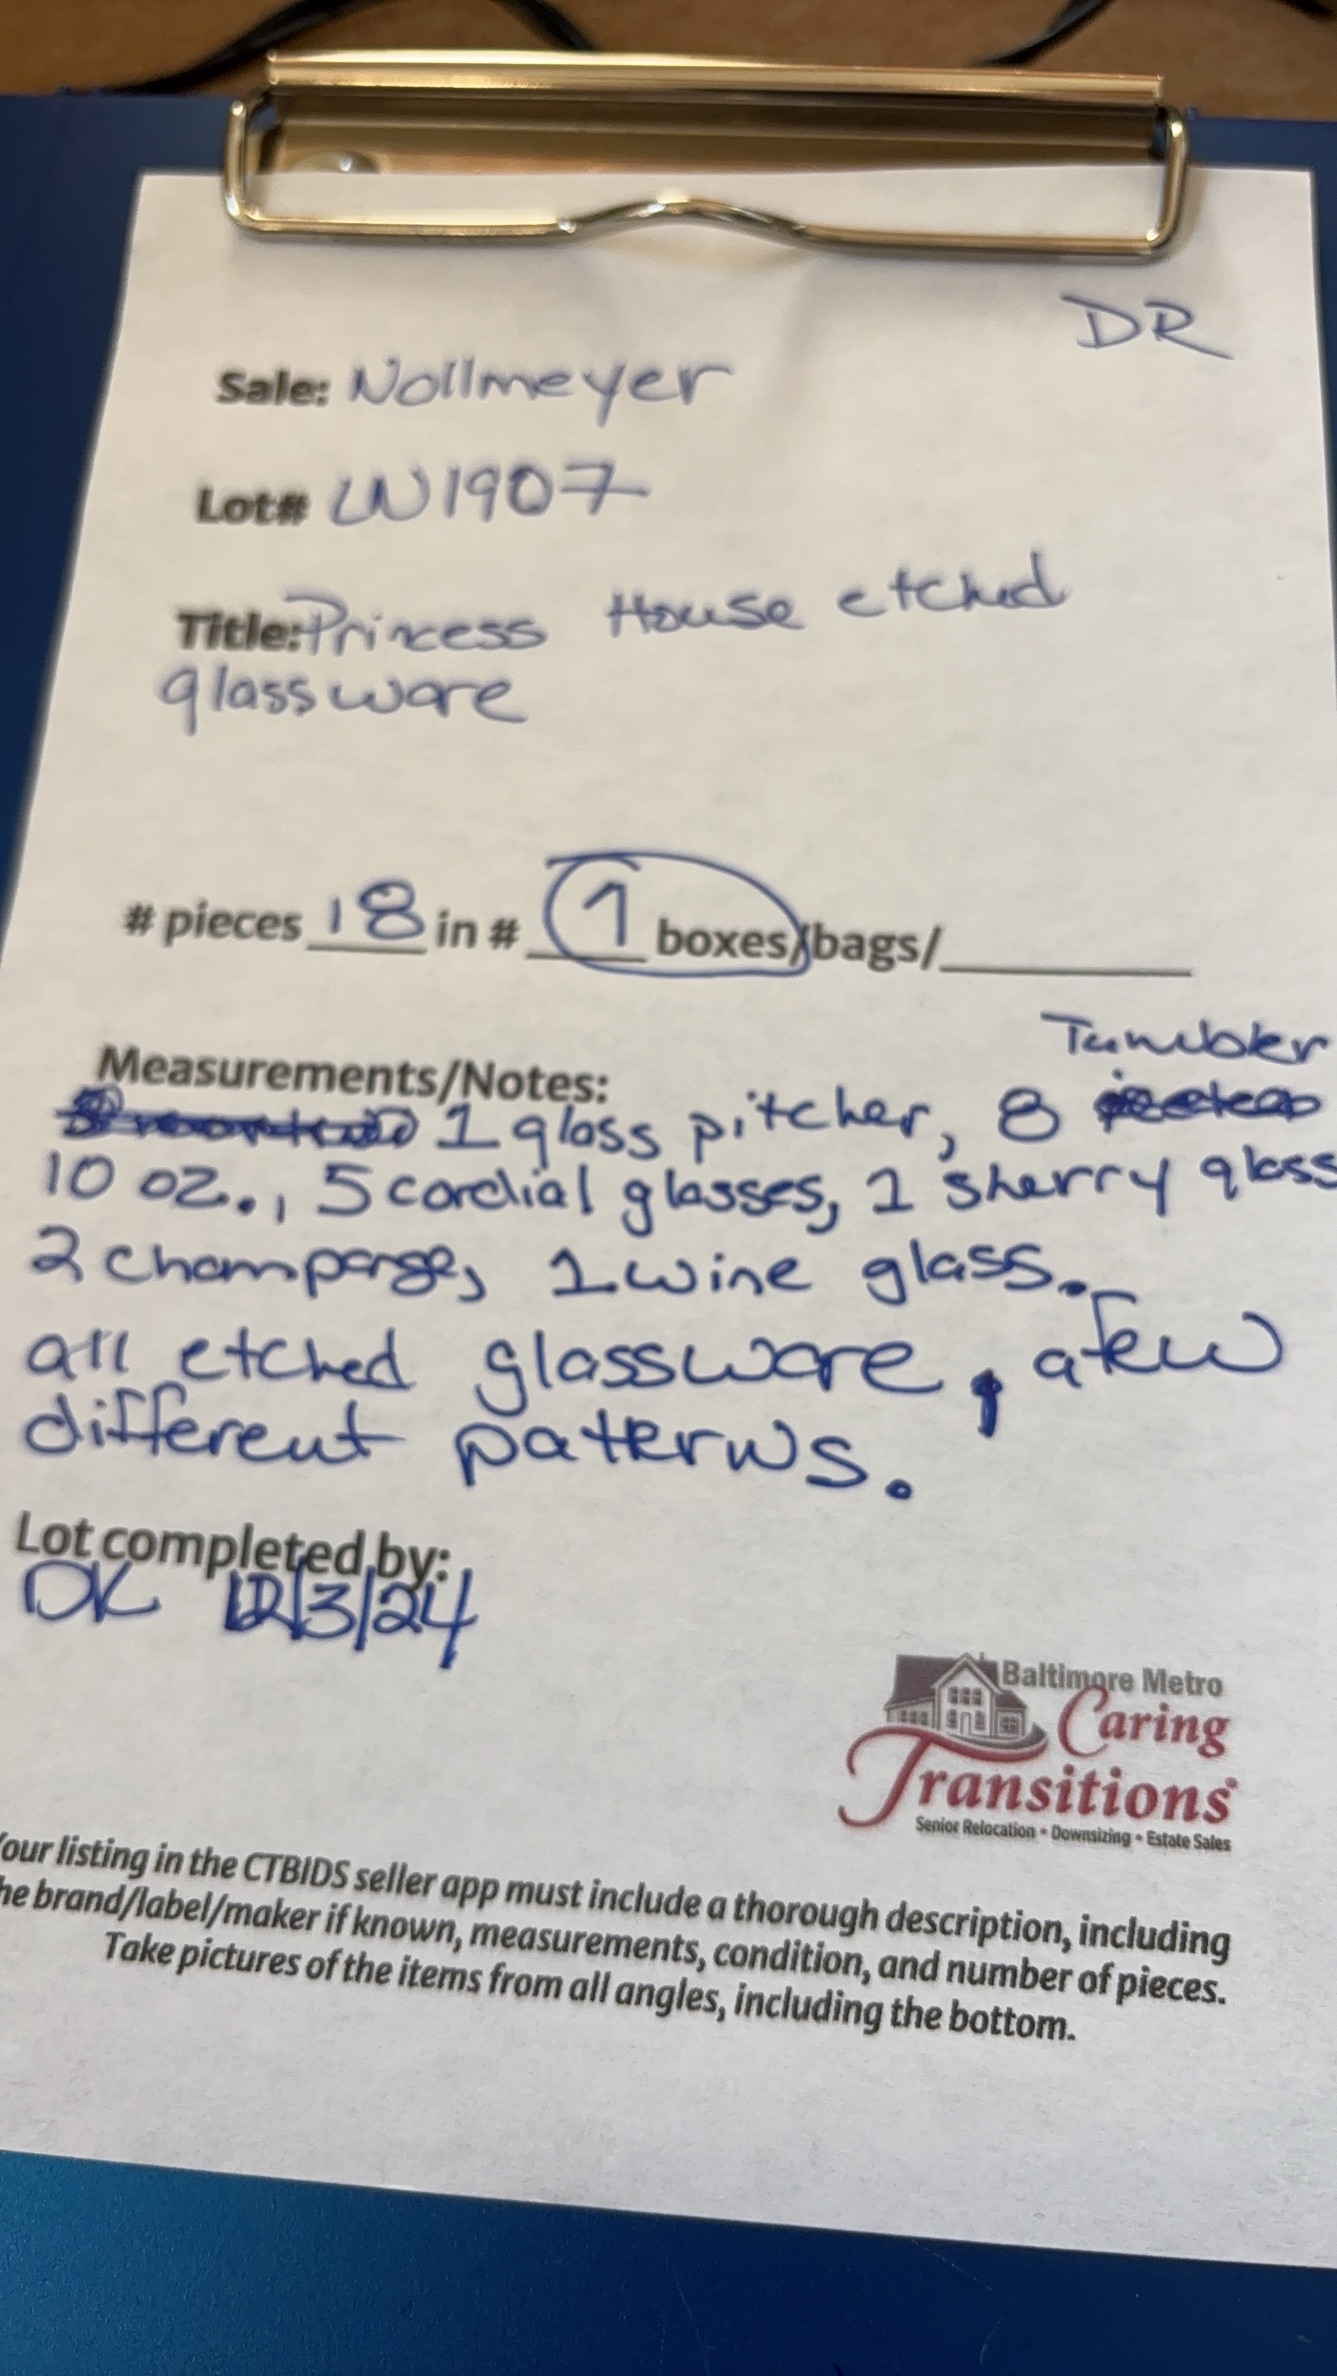 DR
Sale: Nollmeyer
Lot# LN1907
Title: Princess House etched
glassware
# pieces 18 in # 1 boxes/bags/
Tumbler
Measurements/Notes:
1 glass pitcher, 8
10 oz., 5 cordial glasses, 1 sherry glass
2 champange, 1 wine glass.
all etched glassware, a few
different patterns.
Lot completed by:
DK 12/3/24
Baltimore Metro
Caring
Transitions
Senior Relocation • Downsizing • Estate Sales
Your listing in the CTBIDS seller app must include a thorough description, including
he brand/label/maker if known, measurements, condition, and number of pieces.
Take pictures of the items from all angles, including the bottom.